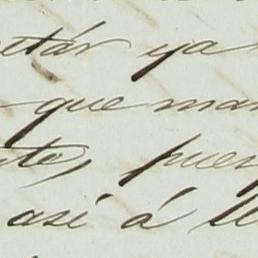 etár ya
que man
te, pues
así á